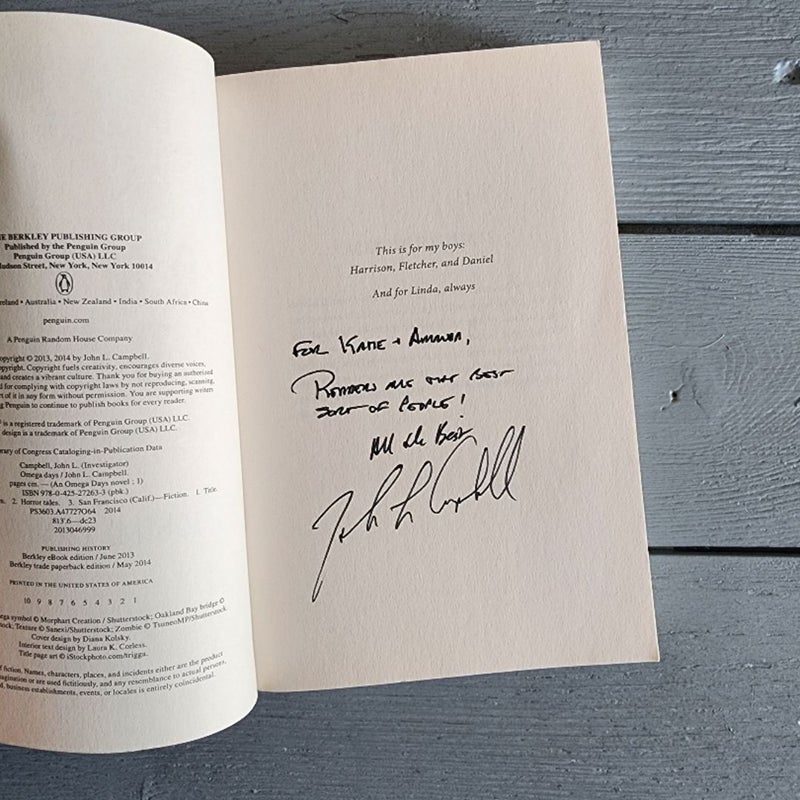 E BERKLEY PUBLISHING GROUP
Published by the Penguin Group
Penguin Group (USA) LLC
Hudson Street, New York, New York 10014
reland • Australia • New Zealand • India • South Africa • China
penguin.com
A Penguin Random House Company
opyright © 2013, 2014 by John L. Campbell.
pyright. Copyright fuels creativity, encourages diverse voices,
and creates a vibrant culture. Thank you for buying an authorized
d for complying with copyright laws by not reproducing, scanning,
t of it in any form without permission. You are supporting writers
g Penguin to continue to publish books for every reader.
is a registered trademark of Penguin Group (USA) LLC.
design is a trademark of Penguin Group (USA) LLC.
rary of Congress Cataloging-in-Publication Data
Campbell, John L. (Investigator)
Omega days / John L. Campbell.
pages cm. — (An Omega Days novel ; 1)
ISBN 978-0-425-27263-3 (pbk.)
s. 2. Horror tales. 3. San Francisco (Calif.)—Fiction. I. Title.
PS3603.A47727O64 2014
813'.6—dc23
2013046999
PUBLISHING HISTORY
Berkley eBook edition / June 2013
Berkley trade paperback edition / May 2014
PRINTED IN THE UNITED STATES OF AMERICA
10 9 8 7 6 5 4 3 2 1
ega symbol © Morphart Creation / Shutterstock; Oakland Bay bridge ©
ock; Texture © Sanexi/Shutterstock; Zombie © TsuneoMP/Shutterstock
Cover design by Diana Kolsky.
Interior text design by Laura K. Corless.
Title page art © iStockphoto.com/trigga.
f fiction. Names, characters, places, and incidents either are the product
magination or are used fictitiously, and any resemblance to actual persons,
d, business establishments, events, or locales is entirely coincidental.
This is for my boys:
Harrison, Fletcher, and Daniel
And for Linda, always
FOR KATIE + AMANDA,
READERS ARE THE BEST
SORT OF PEOPLE!
All the Best
John L Campbell